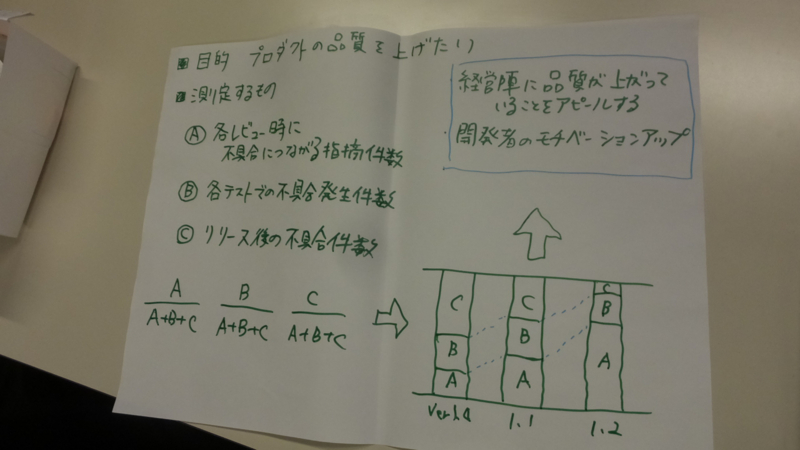 目的 プロダクトの品質を上げたい
測定するもの
Ⓐ 各レビュー時に
不具合につながる指摘件数
Ⓑ 各テストでの不具合発生件数
Ⓒ リリース後の不具合件数
A/A+B+C B/A+B+C C/A+B+C
経営陣に品質が上がって
いることをアピールする
開発者のモチベーションアップ
C C C
B B B
A A A
ver1.0 1.1 1.2